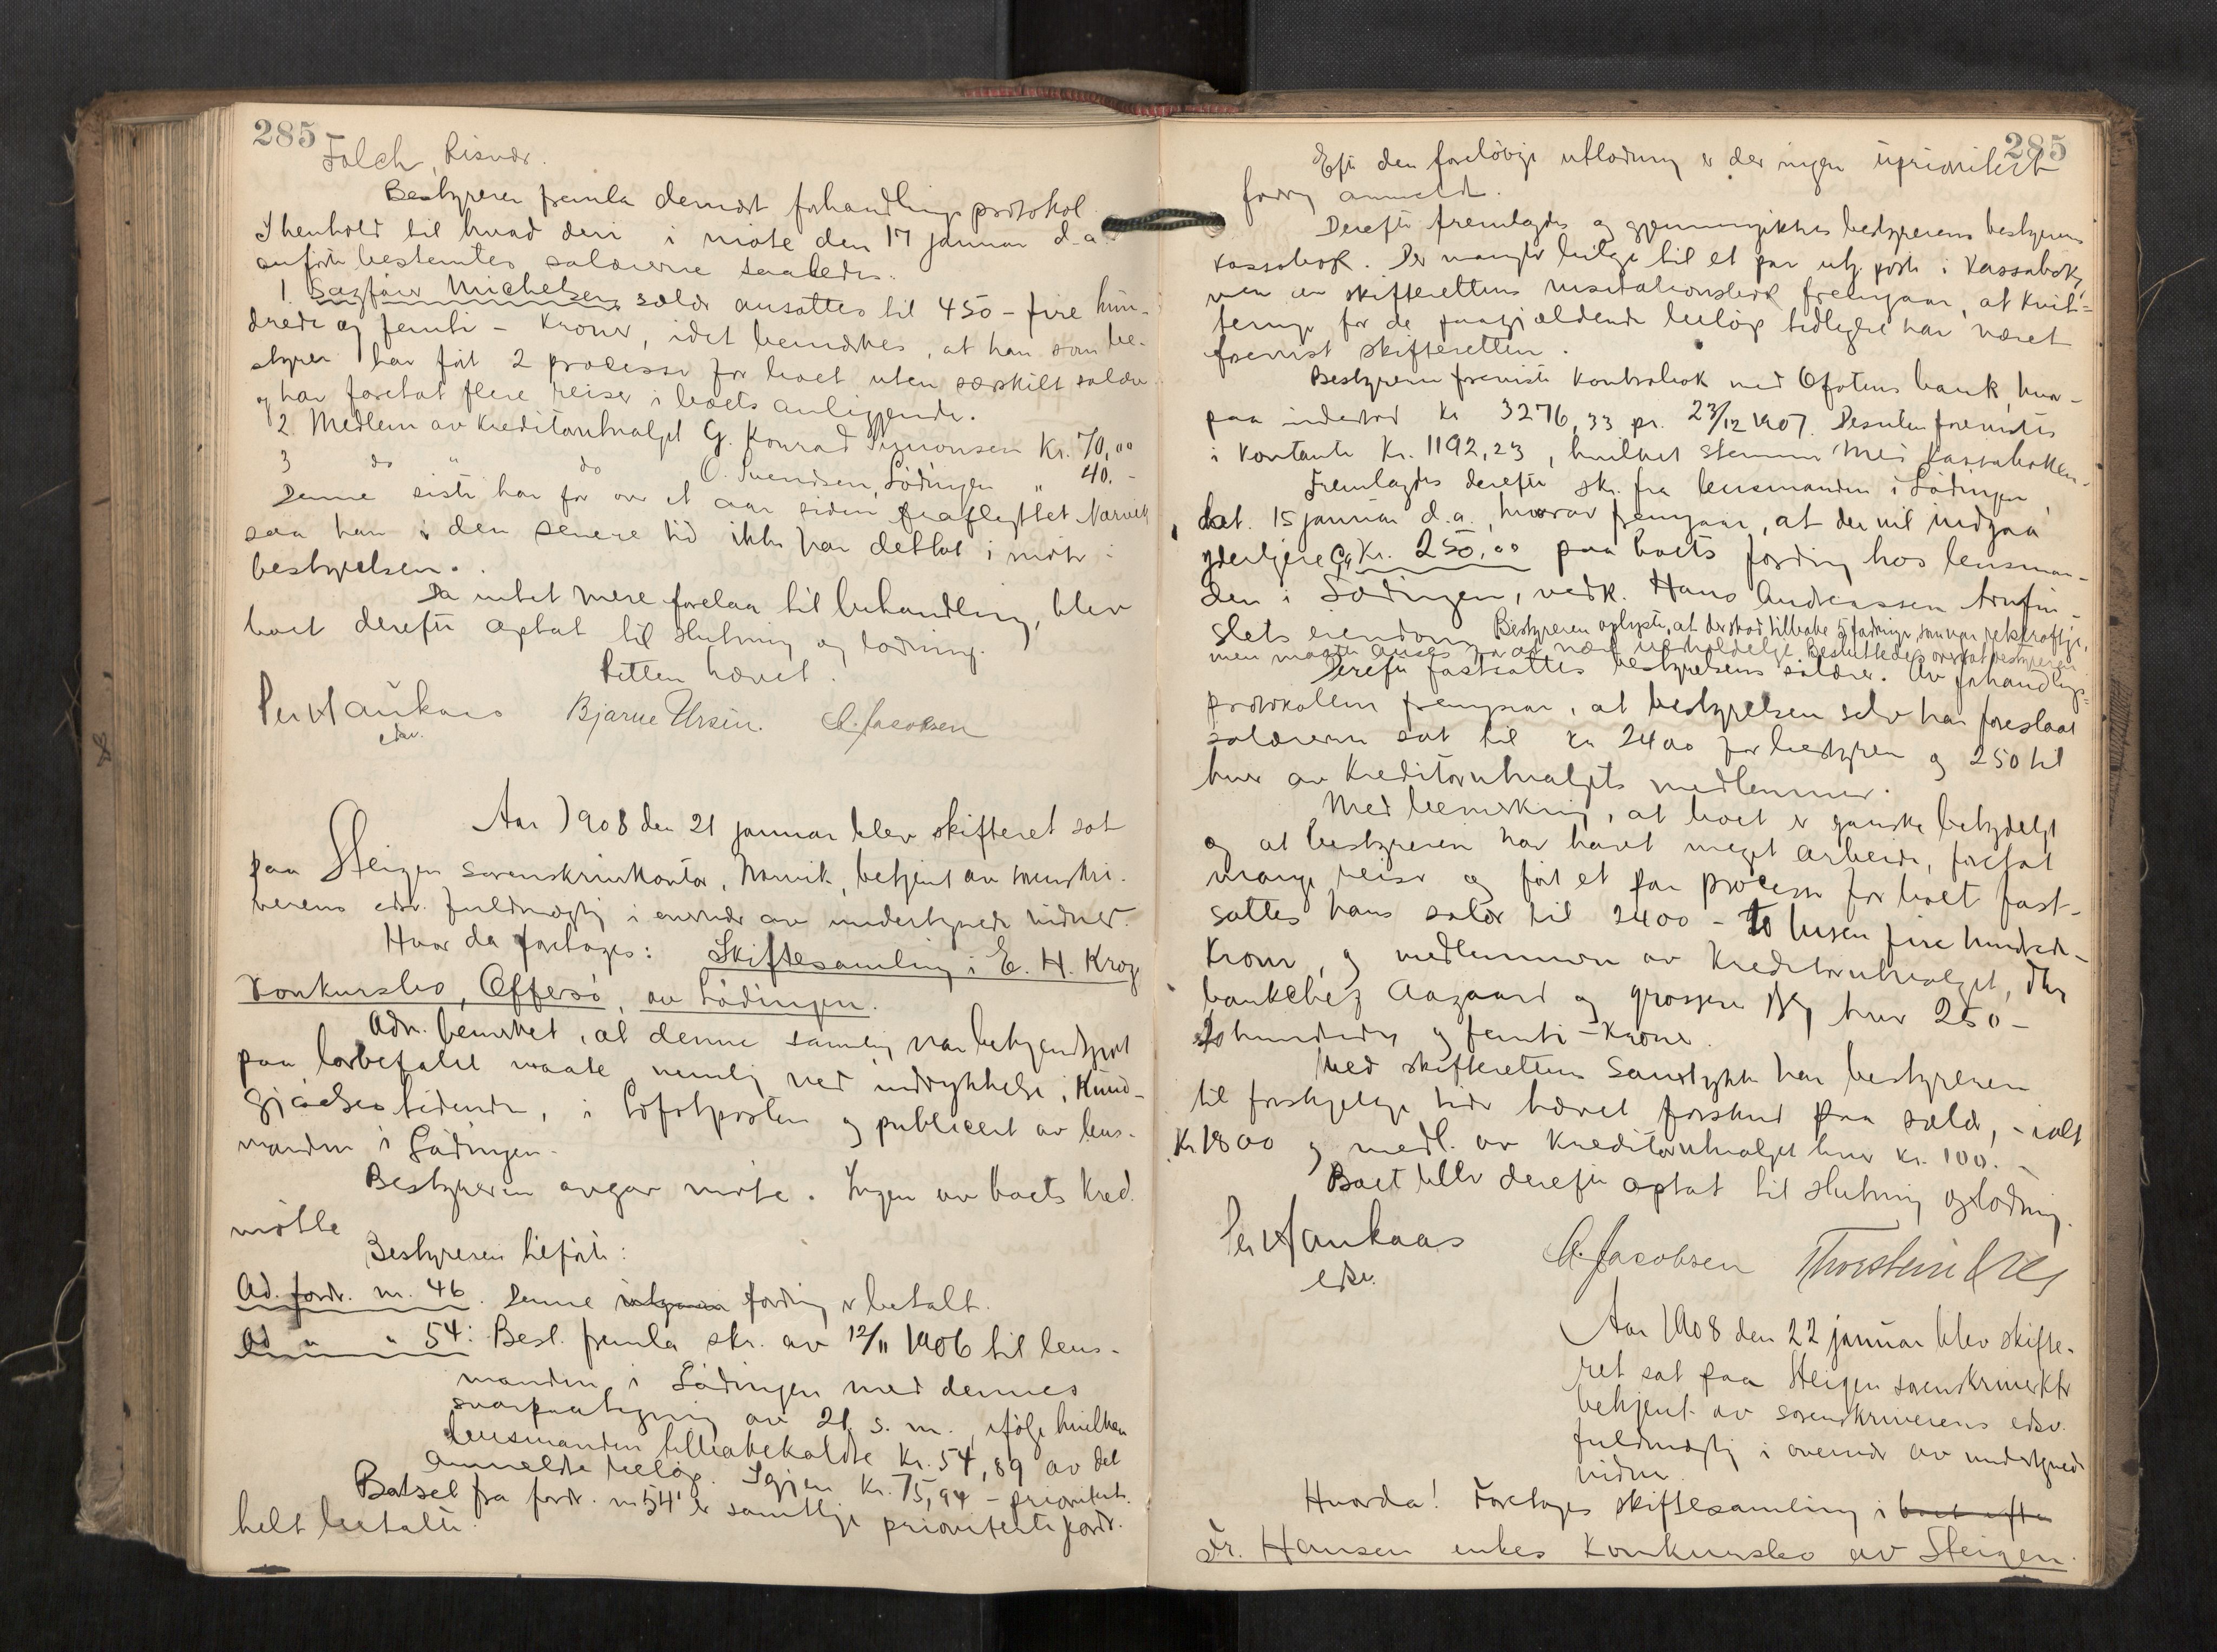 285
Falch, Risvær.
Bestyreren fremla dernæst forhandlingsprotokol.
I henhold til hvad deri i møte den 17 januar d.a.
anført bestemtes salærerne saaledes:
1. Sagfører Michelsens salær ansattes til 450 - fire hun-
drede og femti - kroner, idet bemerkes, at han som be-
styrer har ført 2 processer for boet uten særskilt salær
og har foretat flere reiser i boets anliggende.
2. Medlem av kreditorutvalget G. Konrad Simonsen Kr. 70,00
3 do " do O. Svendsen, Lødingen " 40. -
Denne siste har for over et aar siden fraflyttet Narvik
saa han i den senere tid ikke har deltat i møte i
bestyrelsen.
Da intet mere forelaa til behandling, blev
boet derefter optat til slutning og lodning.
Retten hævet.
Per Haukaas Bjarne Ursin. A. Jacobsen
edsv.
Aar 1908 den 21 januar blev skifteret sat
paa Steigen sorenskriverkontor, Narvik, betjent av sorenskri-
verens edsv. fuldmægtig i overvær av undertegnede vidner.
Hvor da foretoges: Skiftesamling i E. H. Krogs
Konkursbo, Offersø, av Lødingen.
Adm. bemerket, at denne samling var bekjendtgjort
paa lovbefalet maate nemlig ved indrykkelse i Kund-
gjørelsestidende, i Lofotposten og publicert av lens-
manden i Lødingen.
Bestyreren avgav møte. Ingen av boets kred.
møtte
Bestyreren tilførte:
Ad. fordr. nr. 46. Denne fordring er betalt.
Ad " " 54: Best. fremla skr. av 12/11 1906 til lens-
manden i Lødingen med dennes
svarpaategning av 21 s. m., ifølge hvilken
lensmanden tilbakekaldte kr. 54,89 av det
anmeldte beløp. Igjen kr. 75,94 - prioritert.
Batset fra fordr. nr 54 er samtlige prioriterte fordr.
helt betalte.
285
Efter den foreløbige utlodning er der ingen uprioritert
fordring anmeldt.
Derefter fremlagdes og gjennemgikkes bestyrerens bestyrerens
kassabok. Der mangler bilag til et par utg. poster i kassaboken,
men av skifterettens visitationsbok fremgaar, at kvit-
teringer for de paagjældende beløp tidligere har været
forevist skifteretten.
Bestyreren foreviste kontrabok med Ofotens bank, hvor-
paa indestod kr 3276,33 pr. 23/12 1907. Desuten forevistes
i kontanter Kr. 1192,23, hvilket stemmer med kassaboken.
Fremlagdes derefter skr. fra lensmanden i Lødingen,
dat. 15 januar d.a., hvorav fremgaar, at der vil indgaa
yderligere ca kr. 250,00 paa boets fordring hos lensman-
den i Lødingen, vedk. Hans Andreassen Arnfin-
slets eiendom. Bestyreren oplyste, at der stod tilbake 5 fordringer som var retskraftige,
men maatte anses for at være uerholdelige. Besluttedes overlat bestyreren
Derefter fastsattes bestyrelsens salærer. Av forhandlings-
protokollen fremgaar, at bestyrelsen selv har foreslaat
salærerne sat til kr 2400 for bestyreren og 250 til
hver av kreditorutvalgets medlemmer.
Med bemerkning, at boet er ganske betydeligt
og at bestyreren har havt meget arbeide, foretat
mange reiser og ført et par processer for boet fast-
sattes hans salær til 2400 - to tusen fire hundrede -
kroner, og medlemmerne av kreditorutvalget, dhrr
bankchef Aagaard og grosserer hver 250 -
to hundrede og femti - kroner.
Med skifterettens samtykke har bestyreren
til forskjelige tider hævet forskud paa salær, - ialt
Kr 1800 og medl. av kreditorutvalget hver kr. 100. -
Boet blev derefter optat til slutning og lodning.
Per Haukaas A. Jacobsen Thorstein
edsv.
Aar 1908 den 22 januar blev skifte-
ret sat paa Steigen sorenskriverktr
betjent av sorenskriverens edsv.
fuldmægtig i overvær av undertegnede
vidner.
Hvorda! Foretoges skiftesamling i boet efter
Fr. Hansen enkes Konkursbo av Steigen.